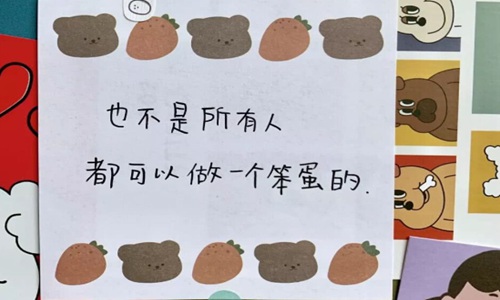 也不是所有人
都可以做一个笨蛋的.